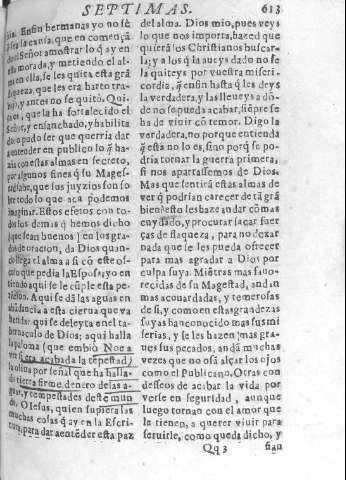 SEPTIMAS. 613
Enfin hermanas yo no sè
sea la causa, que en començã
do el Señor a mostrar lo q̃ ay en
esta morada, y metiendo el al-
ma en ella, se les quita esta grã
flaqueza, que les era harto tra-
bajo, y antes no se quitò. Qui-
çà es, que la ha fortalecido el
Señor, y ensanchado, y habilita
do: o pudo ser que querria dar
a entender en publico lo q̃ ha-
zia con estas almas en secreto,
por algunos fines q̃ su Mages-
tad sabe, que sus juyzios son so
bre todo lo que acà podemos
imaginar. Estos efetos con to-
dos los demas q̃ hemos dicho
que sean buenos en los gra-
dos de oracion, da Dios quan-
do llega el alma a si cõ este os-
culo que pedia la Esposa, yo en
tiendo aqui se le cũple esta pe-
ticion. Aqui se dã las aguas en
abũdancia a esta cierua que va
herida: aqui se deleyta en el ta-
bernaculo de Dios: aqui halla
la paloma (que embiò Noe a
ver si era acabada la tẽpestad)
la oliua por señal que ha halla-
do tierra firme, dentro de las a-
guas, y tempestades deste mun
do. O Iesus, quien supiera las
muchas cosas q̃ ay en la Escri-
tura, para dar a entẽder esta paz
del alma. Dios mio, pues veys
lo que nos importa, hazed que
quierã los Christianos buscar-
la; y a los q̃ la aueys dado no se
la quiteys por vuestra miseri-
cordia, q̃ enfin hasta q̃ les deys
la verdadera, y las lleueys a dõ-
de no se pueda acabar, siẽpre se
ha de viuir cõ temor. Digo la
verdadera, no porque entienda
q̃ esta no lo es, sino porq̃ se po-
dria tornar la guerra primera,
si nos apartassemos de Dios.
Mas que sentirà estas almas de
ver q̃ podrian carecer de tã grã
bien? esto les haze andar cõ mas
cuydado, y procurar sacar fuer
ças de flaqueza, para no dexar
nada que se les pueda ofrecer
para mas agradar a Dios por
culpa suya. Miẽtras mas fauo-
recidas de su Magestad, andan
mas acouardadas, y temerosas
de si, y como en estas grandezas
suyas han conocido mas sus mi
serias, y se les hazen mas gra-
ues sus pecados, andã muchas
vezes que no osã alçar los ojos
como el Publicano. Otras con
desseos de acabar la vida por
verse en seguridad, aunque
luego tornan con el amor que
le tienen, a querer viuir para
seruirle, como queda dicho, y
Qq 3 fian